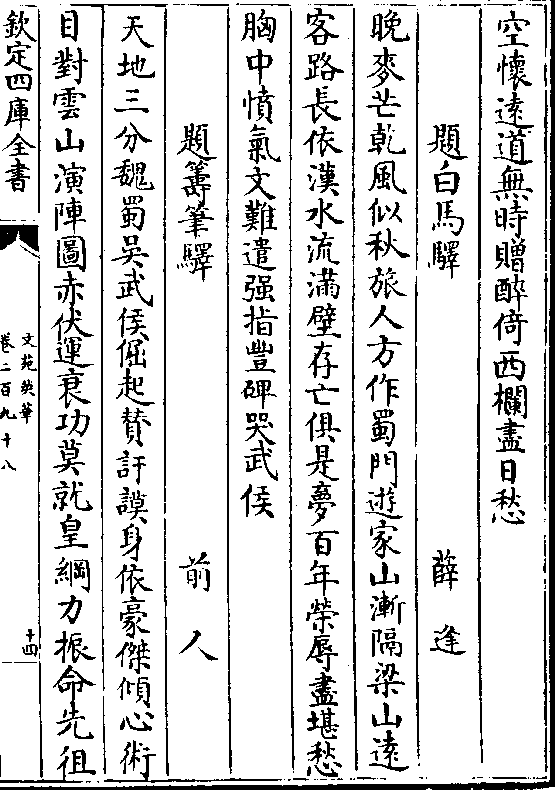 空懷遠道無時贈醉倚西欄盡日愁
題白馬驛 薛逢
晚麥芒乾風似秋旅人方作蜀門遊家山漸隔梁山遠
客路長依漢水流滿壁存亡俱是夢百年榮辱盡堪愁
胸中憤氣文難遣强指豐碑哭武侯
題籌筆驛 前人
天地三分魏蜀吳武侯倔起賛訏謨身依豪傑傾心術
目對雲山演陣圖赤伏運衰功莫就皇綱力振命先徂
欽定四庫全書
文苑英華
卷二百九十八
十四